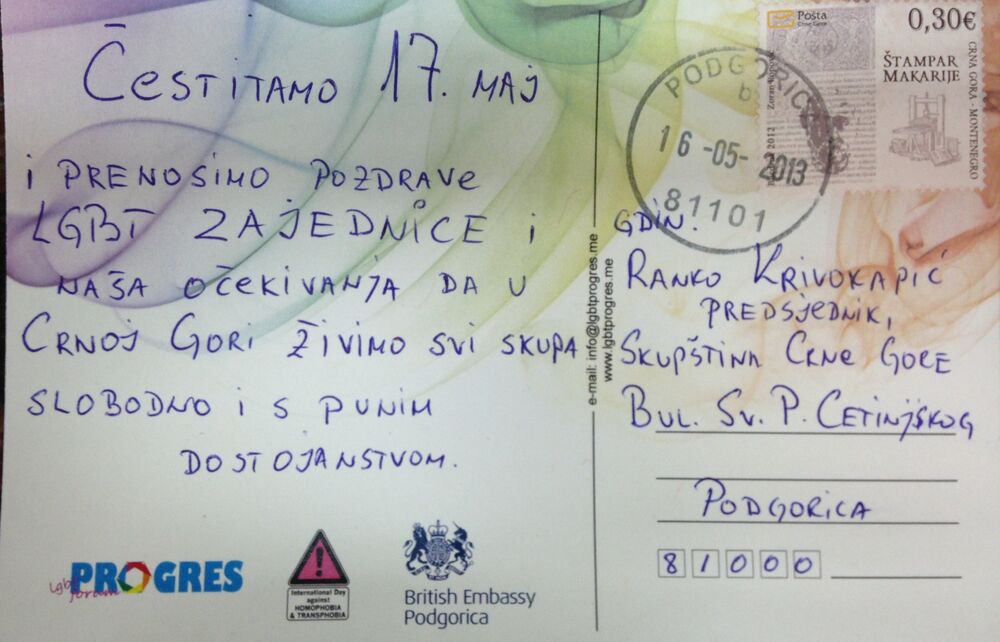 Čestitamo 17. maj
i prenosimo pozdrave
LGBT zajednice i
naša očekivanja da u
Crnoj Gori živimo svi skupa
slobodno i s punim
dostojanstvom.
lgbt forum
PROGRES
International Day
against
HOMOPHOBIA
& TRANSPHOBIA
British Embassy
Podgorica
e-mail: info@lgbtprogres.me
www.lgbtprogres.me
Pošta
Crne Gore
0,30€
ŠTAMPAR
MAKARIJE
CRNA GORA - MONTENEGRO
2012
PODGORICA
16-05-2013
81101
Gdin.
Ranko Krivokapić
predsjednik,
Skupština Crne Gore
Bul. Sv. P. Cetinjskog
Podgorica
81000